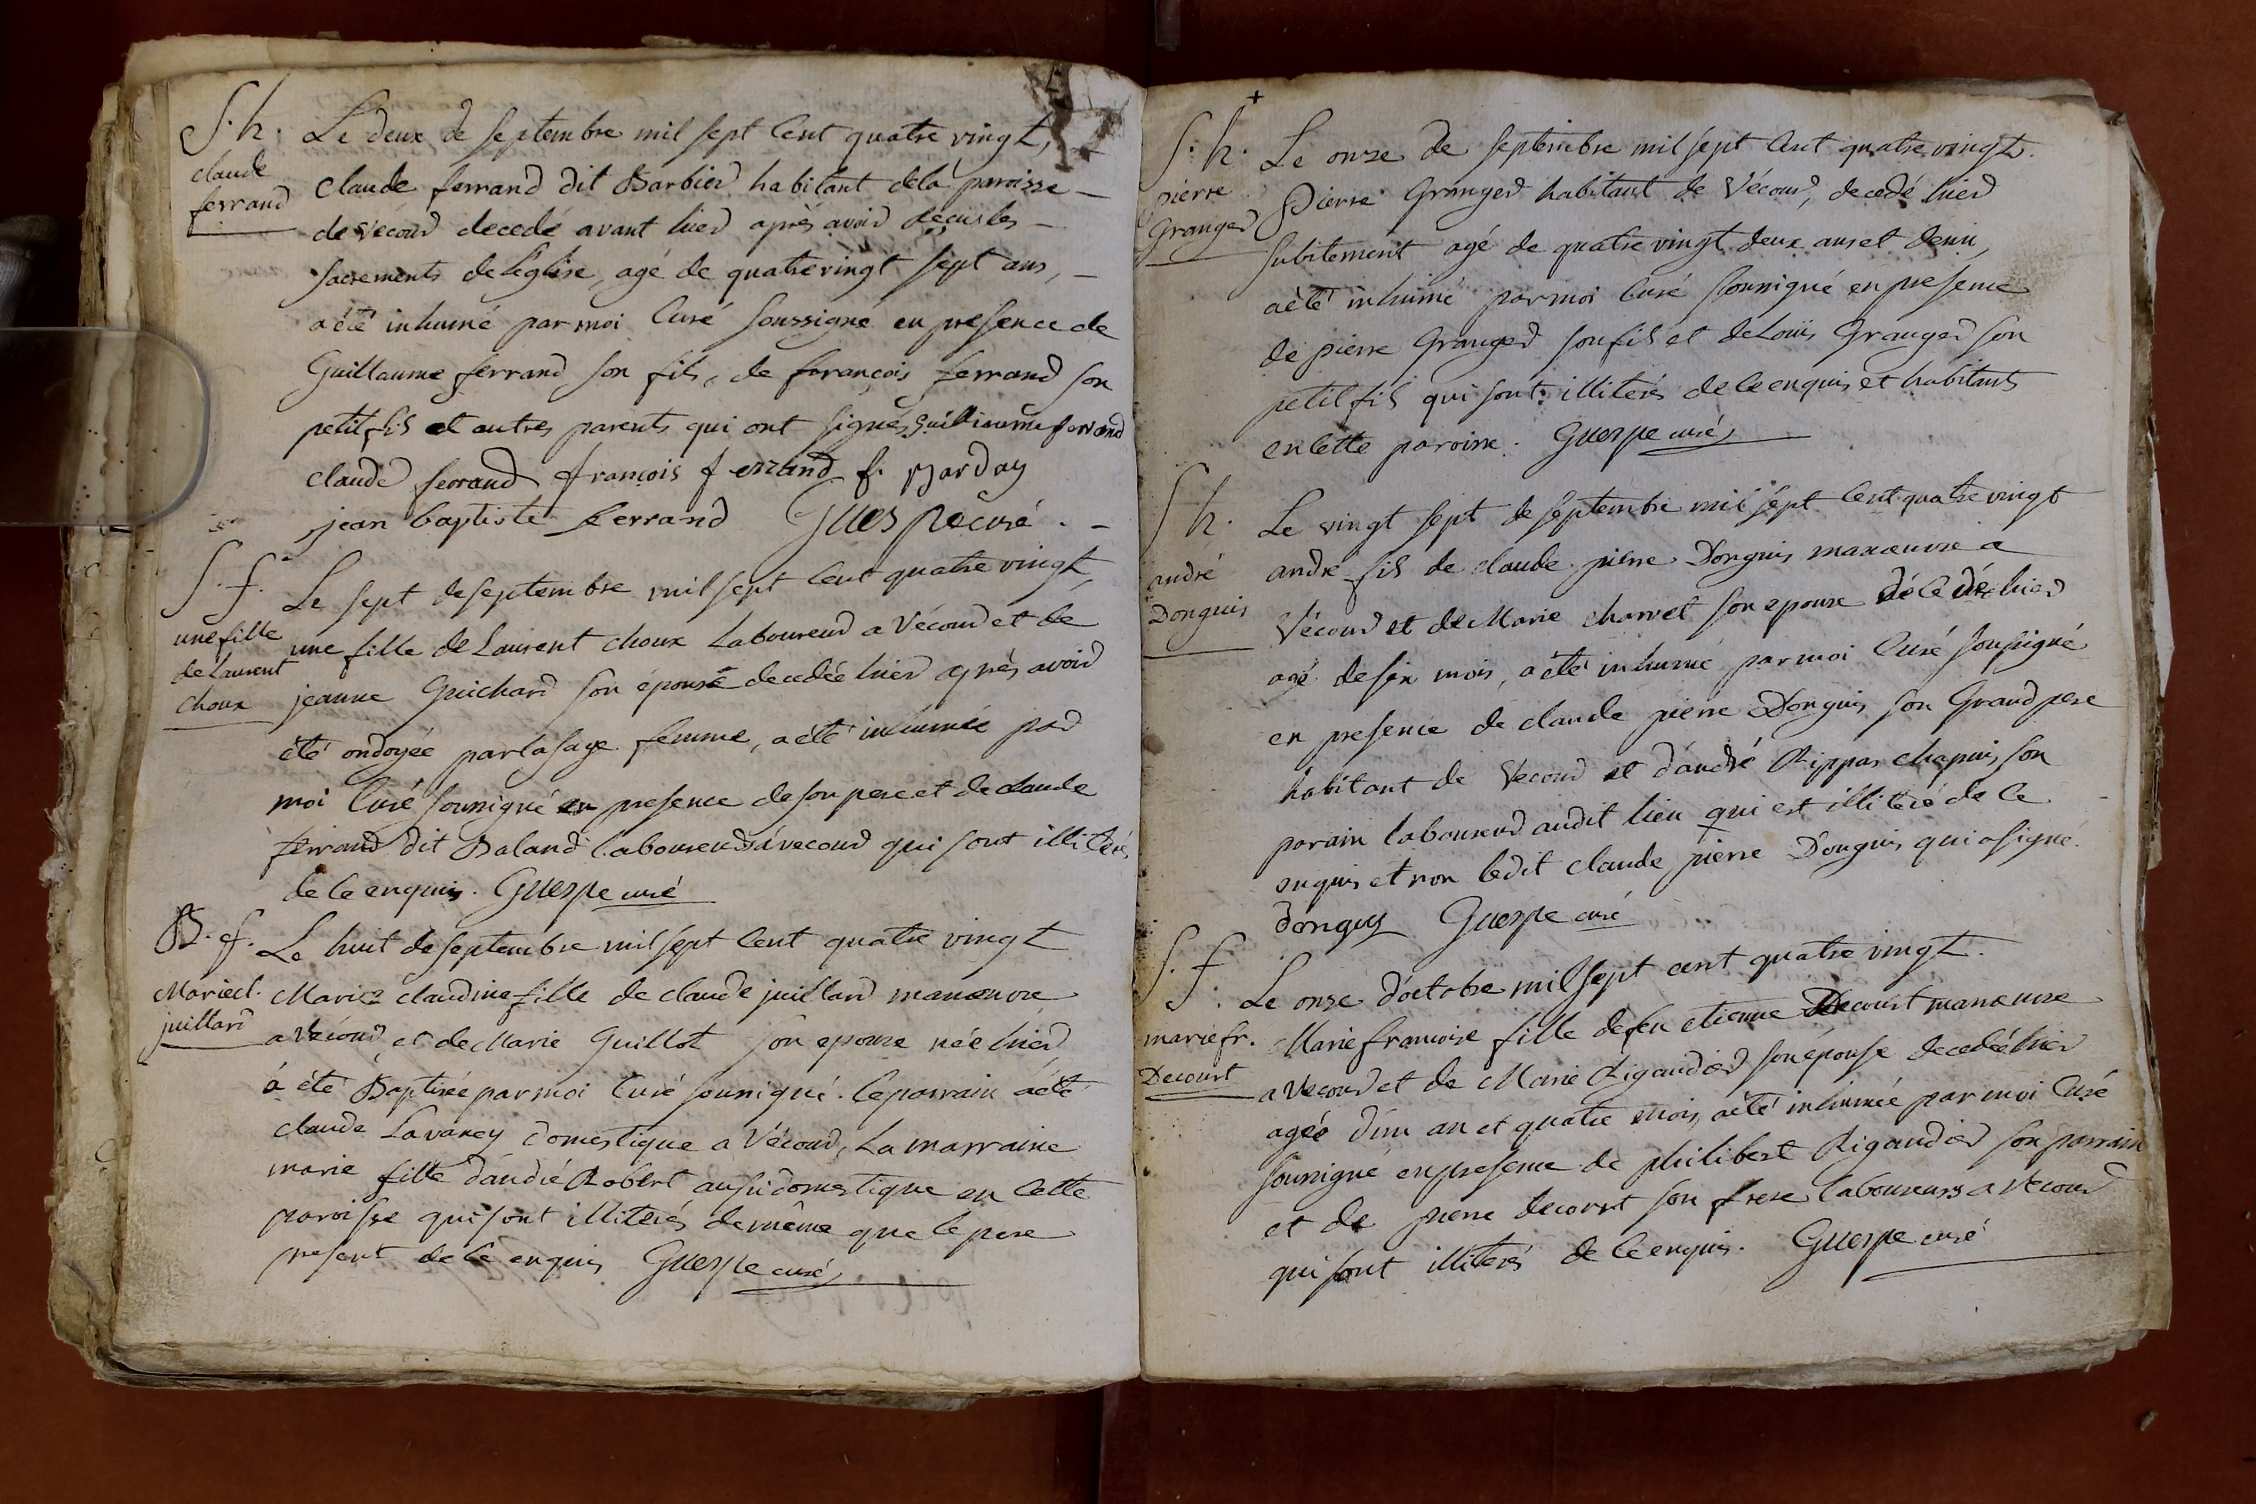 S. h. Le deux de septembre mil sept Cent quatre vingt,
claude
ferrand
claude ferrand dit Barbier habitant dela paroisse
de vécour decedé avant hier après avoir reçus les
sacrements de l'eglise, agé de quatre vingt sept ans,
a été inhumé par moi Curé soussigné en presence de
Guillaume ferrand son fils, de françois ferrand son
petit fils et autres parents qui ont signés guilliaume ferrand
claude ferrand françois ferrand f. Barday
jean baptiste ferrand Guespe curé.
S. f. Le sept de septembre mil sept Cent quatre vingt,
une fille
de Laurent
choux
une fille de Laurent choux Laboureur a Vécour et de
jeanne Guichard son épouse decedée hier après avoir
été ondoyée par la sage femme, a été inhumée par
moi Curé soussigné en presence de son pere et de claude
ferrand dit Baland laboureurs a vecour qui sont illiterés
de ce enquis. Guespe curé
B. f. Le huit de septembre mil sept Cent quatre vingt
Marie cl.
juillard
Marie claudine fille de claude juillard manœuvre
a Vecour et de Marie Guillot son epouse née hier
à été Baptisée par moi Curé soussigné. le parrain a été
claude Lavancy domestique a Vécour, La marraine
marie fille d'andré Robert aussi domestique en cette
paroisse qui sont illiterés de même que le pere
present de ce enquis Guespe curé
S. h. Le onze de septembre mil sept Cent quatre vingt.
pierre
Granger
Pierre Granger habitant de Vécour, decedé hier
subitement agé de quatre vingt deux ans et demi,
a été inhumé par moi Curé soussigné en presence
de pierre Granger son fils et de Louis Granger son
petit fils qui sont illiterés de ce enquis et habitants
en cette paroisse. Guespe curé
S h. Le vingt sept de septembre mil sept Cent quatre vingt
andré
Donguis
andré fils de claude pierre Donguis manœuvre a
Vécour et de Marie charvet son epouse décédé hier
agé de six mois, a été inhumé par moi Curé soussigné
en presence de claude pierre Donguis son Grand pere
habitant de Vecour et d'andré Rippas chapuis son
parain laboureur audit lieu qui est illiteré de ce
enquis et non ledit claude pierre Donguis qui a signé.
donguy Guespe curé
S. f. Le onze d'octobre mil sept cent quatre vingt.
marie fr.
Decourt
Marie francoise fille de feu etienne Decourt manœuvre
a Vecour et de Marie Rigaudier son épouse decedée hier
agée d'un an et quatre mois, a été inhumée par moi Curé
soussigné en presence de philibert Rigaudier son parrain
et de pierre decourt son frere laboureurs a Vecour
qui sont illiterés de ce enquis. Guespe curé